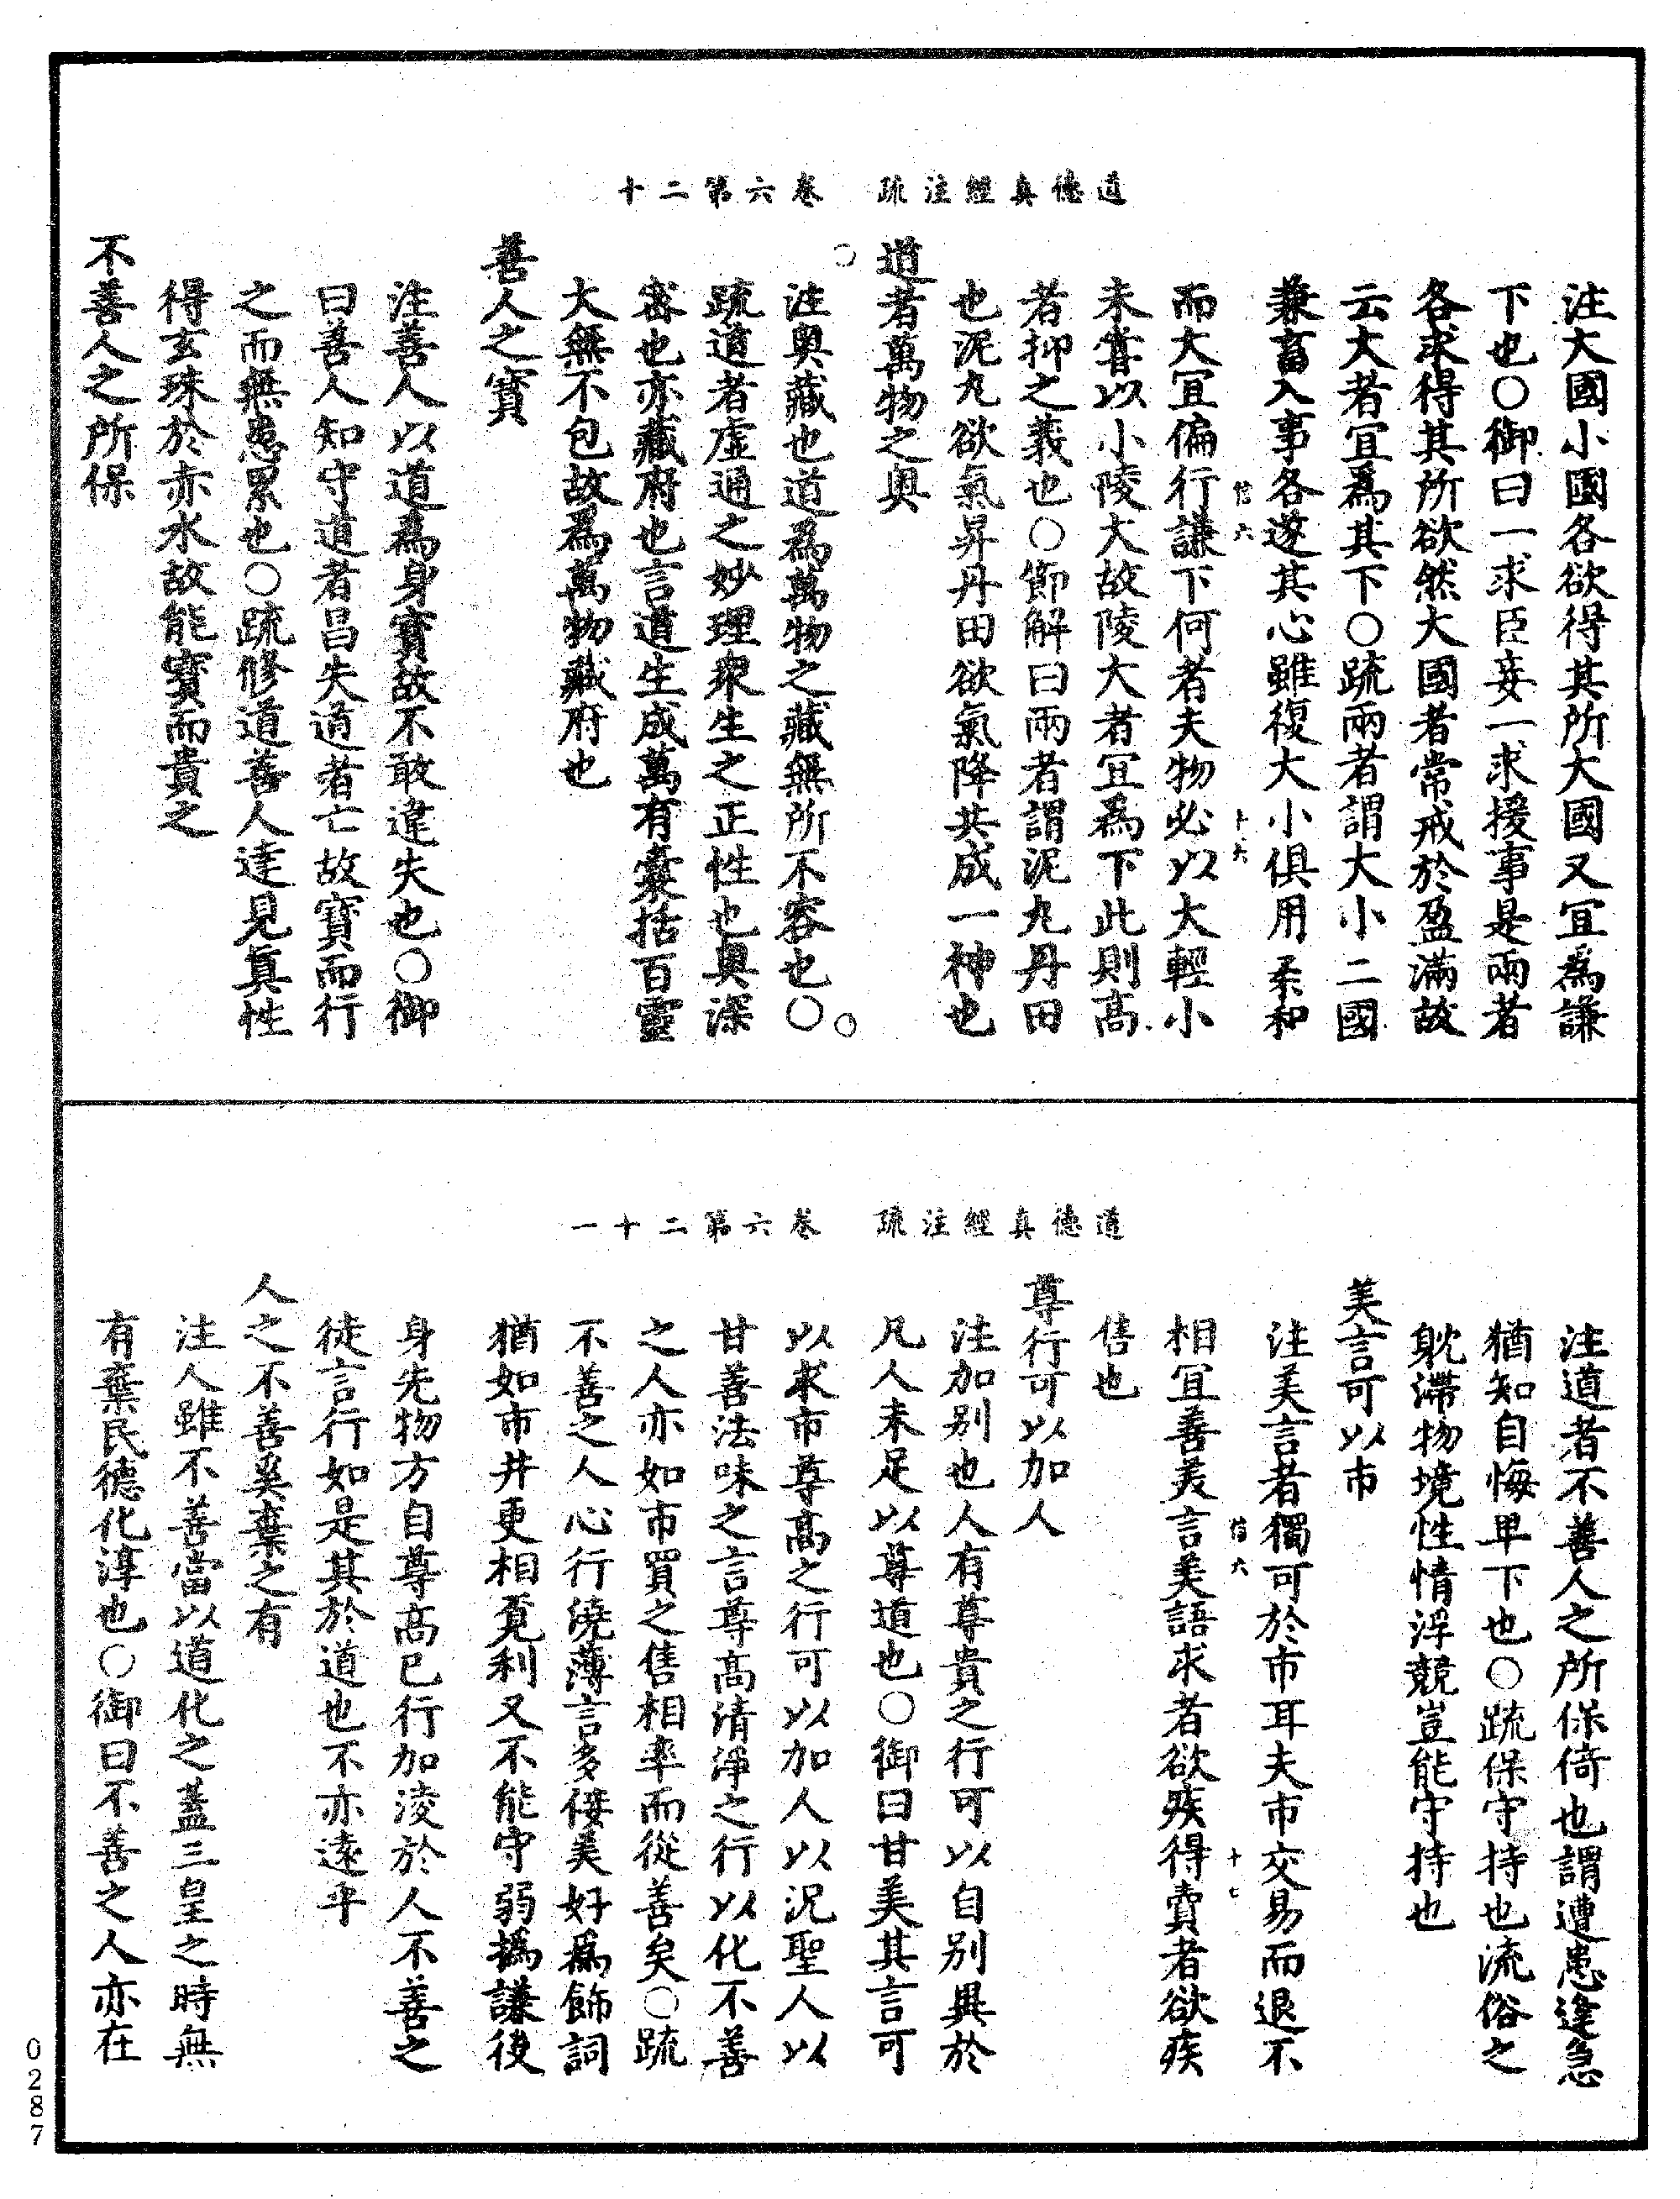 道德真經注疏　卷六第二十
注大國小國各欲得其所大國又宜為謙
下也○御曰一求臣妾一求援事是兩者
各求得其所欲然大國者常戒於盈滿故
云大者宜為其下○疏兩者謂大小二國
兼畜入事各遂其心雖復大小俱用柔和
信六　十六
而大宜偏行謙下何者夫物必以大輕小
未嘗以小陵大故陵大者宜為下此則高
者抑之義也○節解曰兩者謂泥丸丹田
也泥丸欲氣昇丹田欲氣降共成一神也
道者萬物之奧
○　○
注奧藏也道為萬物之藏無所不容也○
疏道者虛通之妙理眾生之正性也奧深
密也亦藏府也言道生成萬有囊括百靈
大無不包故為萬物藏府也
善人之寶
注善人以道為身寶故不敢違失也○御
曰善人知守道者昌失道者亡故寶而行
之而無患累也○疏修道善人達見真性
得玄珠於赤水故能寶而貴之
不善人之所保
道德真經注疏　卷六第二十一
注道者不善人之所保倚也謂遭患逢急
猶知自悔卑下也○疏保守持也流俗之
耽滯物境性情浮競豈能守持也
美言可以市
注美言者獨可於市耳夫市交易而退不
信六　十七
相宜善美言美語求者欲疾得賣者欲疾
售也
尊行可以加人
注加別也人有尊貴之行可以自別異於
凡人未足以尊道也○御曰甘美其言可
以求市尊高之行可以加人以況聖人以
甘善法味之言尊高清淨之行以化不善
之人亦如市買之售相率而從善矣○疏
不善之人心行澆薄言多佞美好為飾詞
猶如市井更相覔利又不能守弱撝謙後
身先物方自尊高己行加淩於人不善之
徒言行如是其於道也不亦遠乎
人之不善奚棄之有
注人雖不善當以道化之蓋三皇之時無
有棄民德化淳也○御曰不善之人亦在
0287